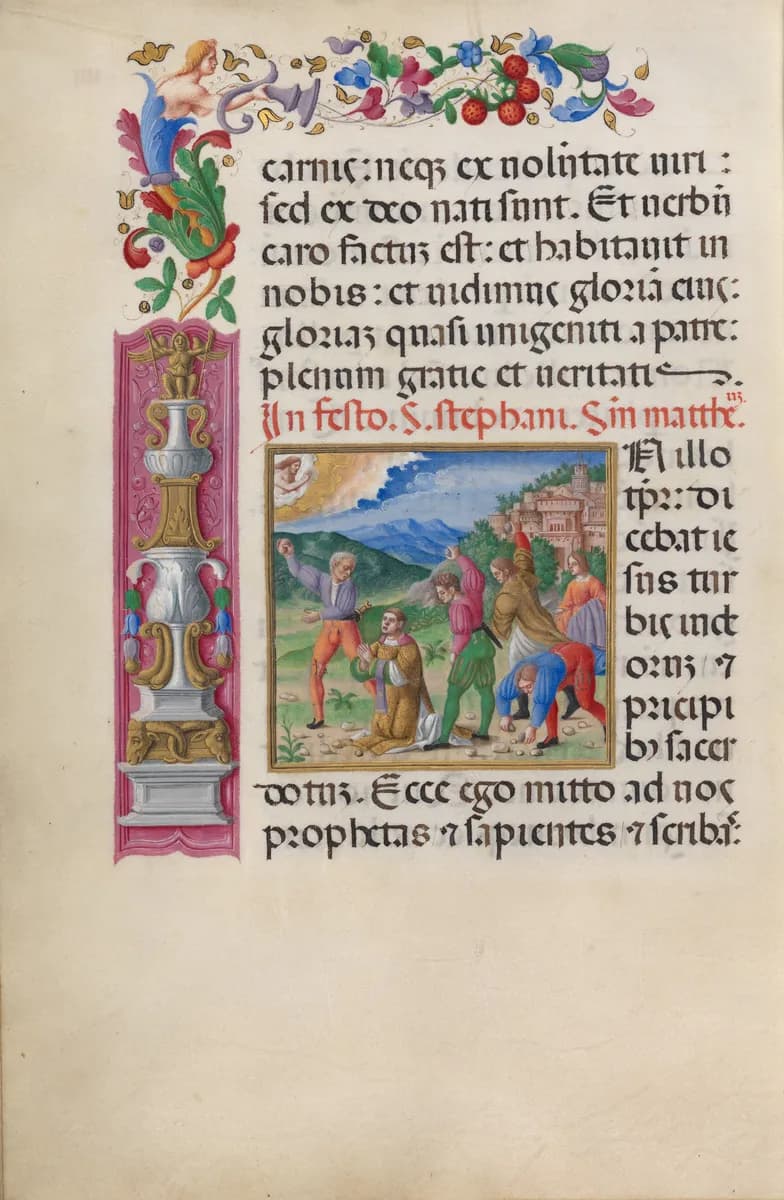 carnis: neqȝ ex nolūtate uiri :
sed ex deo nati sunt. Et uerbū
caro factuȝ est: et habitauit in
nobis: et uidimus gloriā eius:
gloriaȝ quasi unigeniti a patre:
plenum gratie et ueritatis.
In festo. S. stephani. Sm̄ mattheuȝ.
N illo
tp̄r: di
cebat ie
sus tur
bis iude
oruȝ ⁊
pricipi
bꝰ sacer
dotuȝ. Ecce ego mitto ad uos
prophetas ⁊ sapientes ⁊ scribas: